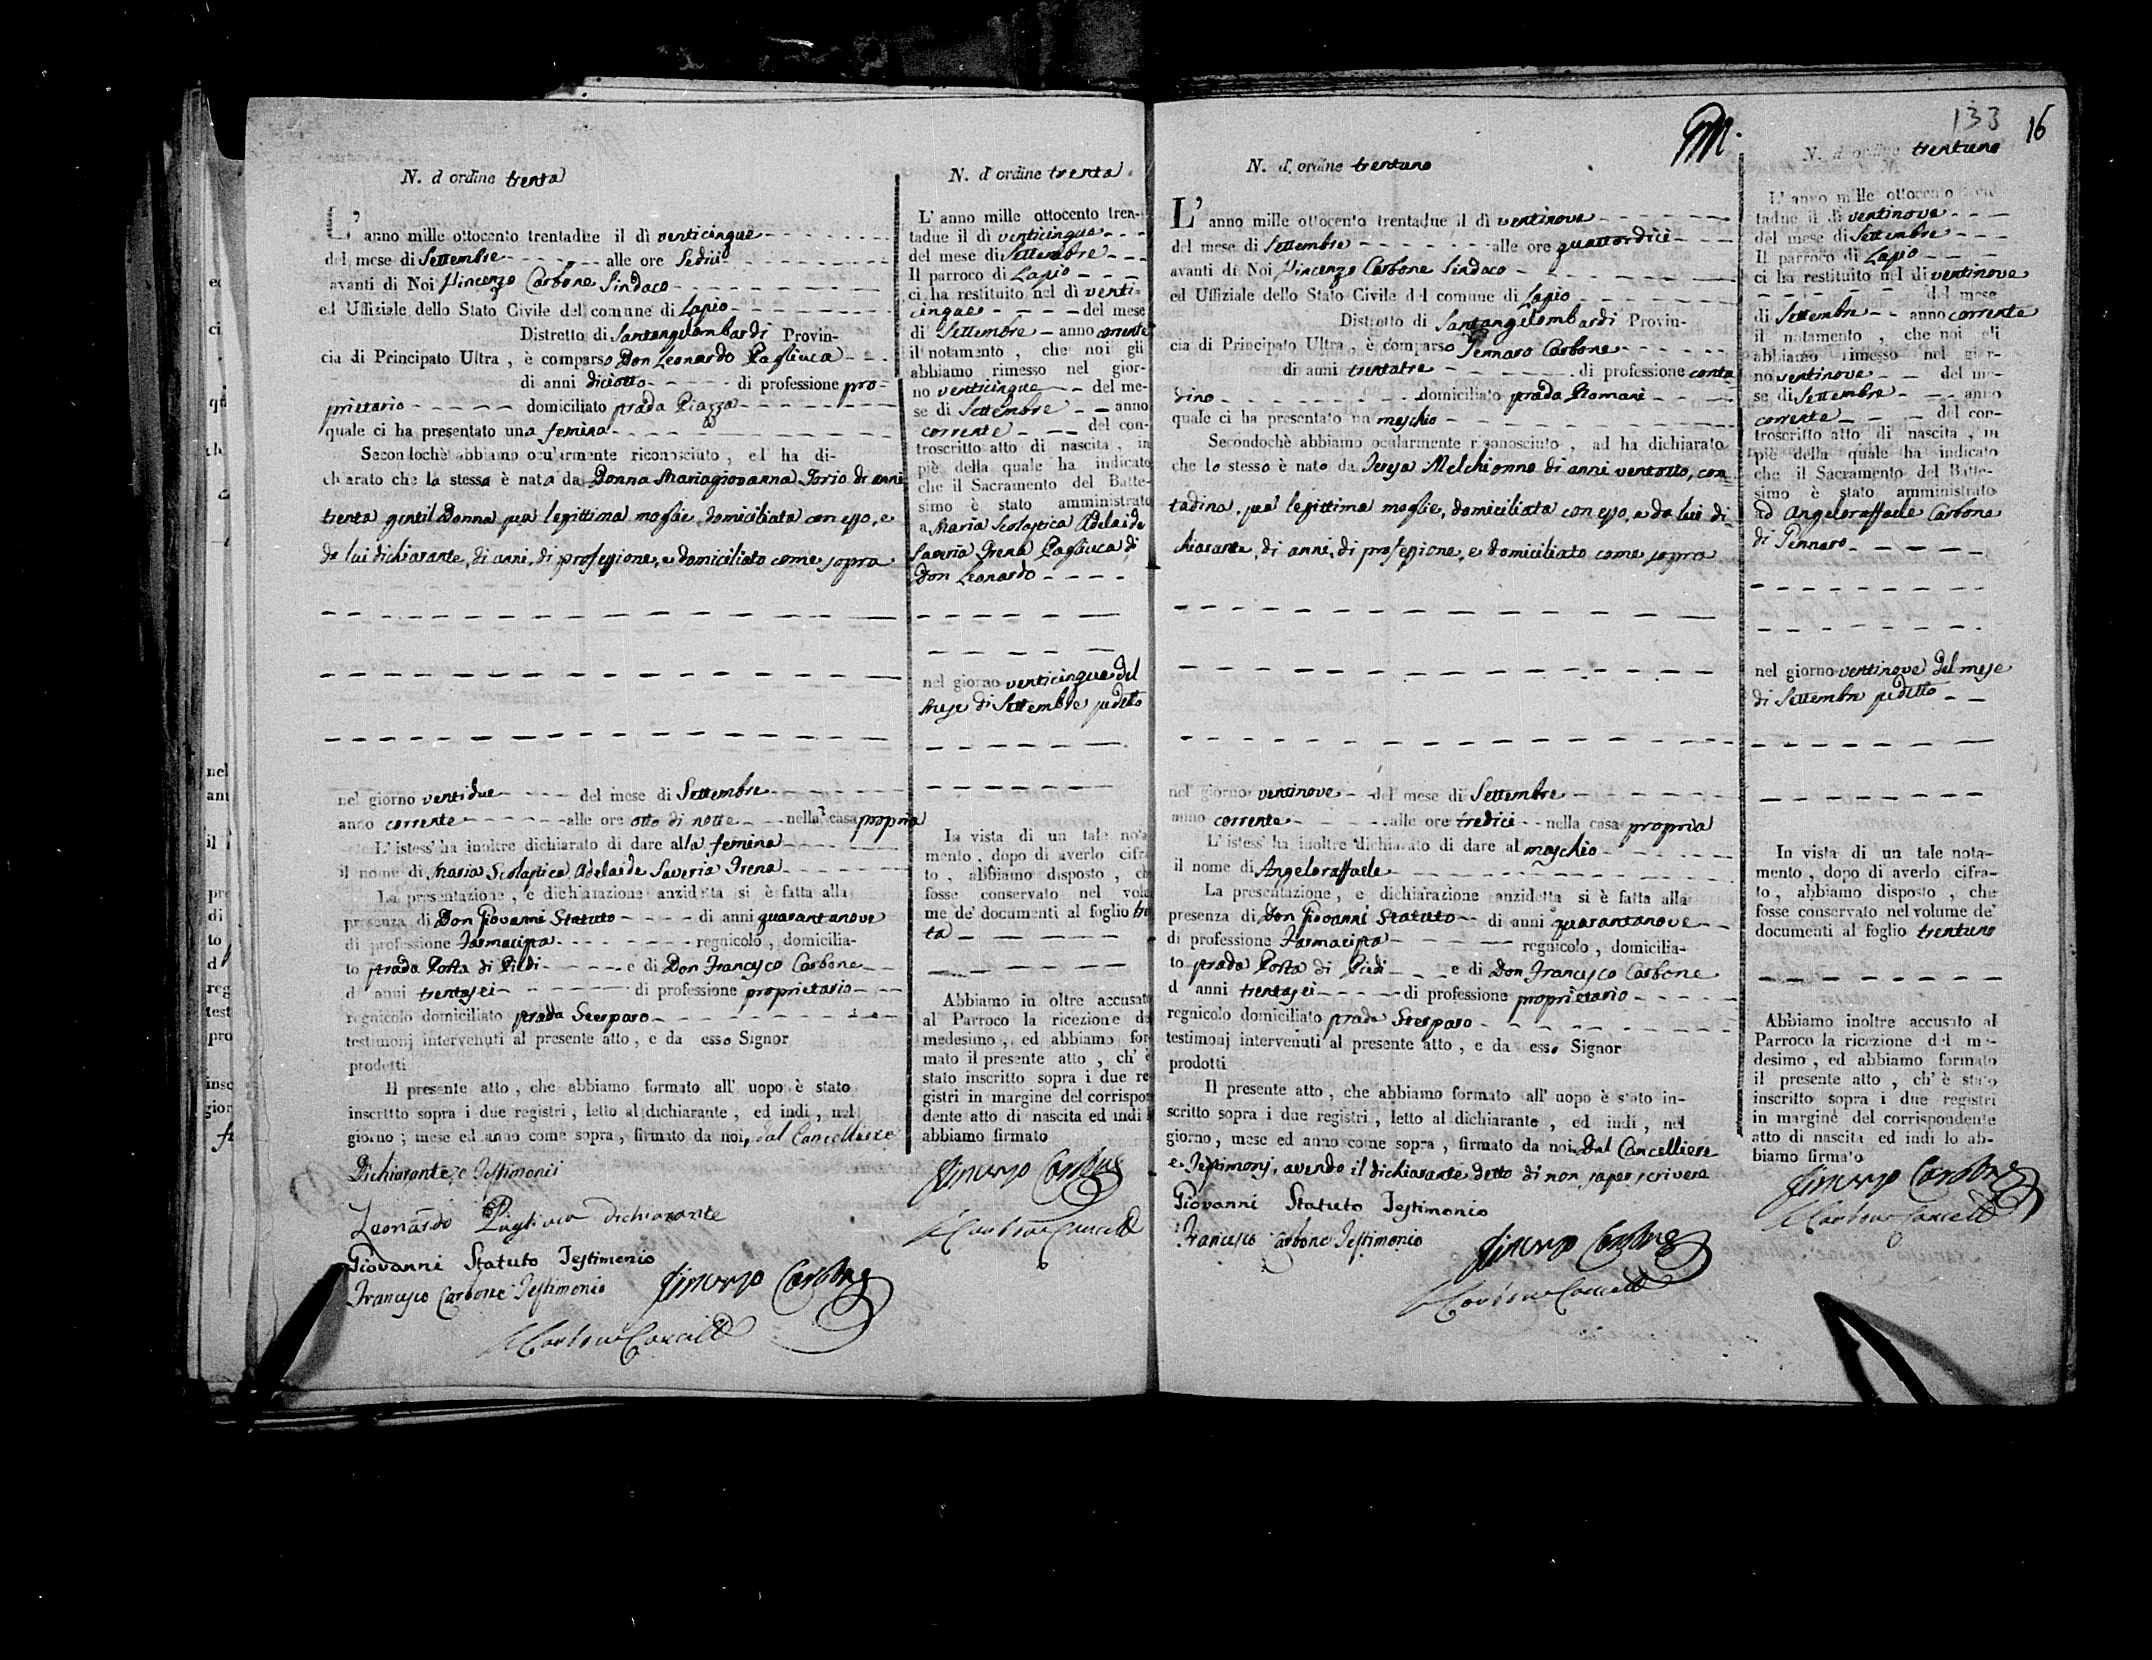 N. d'ordine trenta
L' anno mille ottocento trentadue il dì venticinque
del mese di Settembre alle ore Sedici
avanti di Noi Vincenzo Carbone Sindaco
ed Uffiziale dello Stato Civile del comune di Lapio
Distretto di Santangelombardi Provin-
cia di Principato Ultra, è comparso Don Leonardo Pagliuca
di anni diciotto di professione pro=
prietario domiciliato strada Piazza
quale ci ha presentato una femina
Secondochè abbiamo ocularmente riconosciuto, ed ha di-
chiarato che la stessa è nata da Donna Mariagiovanna Iorio di anni
trenta gentil Donna sua legittima moglie, domiciliata con esso, e
da lui dichiarante, di anni, di professione, e domiciliato come sopra
nel giorno ventidue del mese di Settembre
anno corrente alle ore otto di notte nella casa propria
L' istess' ha inoltre dichiarato di dare alla femina
il nome di Maria Scolastica Adelaide Saveria Irena
La presentazione, e dichiarazione anzidetta si è fatta alla
presenza di Don Giovanni Statuto di anni quarantanove
di professione Farmacista regnicolo, domicilia-
to strada Porta di Piedi e di Don Francesco Carbone
d anni trentasei di professione proprietario
regnicolo domiciliato strada
testimonj intervenuti al presente atto, e da esso Signor
prodotti
Il presente atto, che abbiamo formato all' uopo è stato
inscritto sopra i due registri, letto al dichiarante, ed indi, nel
giorno; mese ed anno come sopra, firmato da noi, dal Cancelliere
Dichiarante, e Testimonii
Leonardo Pagliuca dichiarante
Giovanni Statuto Testimonio
Francesco Carbone Testimonio Vincenzo Carbone
Carbone Cancell
N. d'ordine trenta
L' anno mille ottocento tren-
tadue il dì venticinque
del mese di Settembre
Il parroco di Lapio
ci ha restituito nel dì venti=
cinque del mese
di Settembre anno corrente
il notamento, che noi gli
abbiamo rimesso nel gior-
no venticinque del me-
se di Settembre anno
corrente del con-
troscritto atto di nascita, in
piè della quale ha indicato
che il Sacramento del Batte-
simo è stato amministrato
a Maria Scolastica Adelaide
Saveria Irena Pagliuca di
Don Leonardo
nel giorno venticinque del
mese di Settembre sudetto
In vista di un tale nota
mento, dopo di averlo cifra
to, abbiamo disposto, ch
fosse conservato nel volu
me de' documenti al foglio tren
ta
Abbiamo in oltre accusato
al Parroco la ricezione de
medesimo, ed abbiamo for
mato il presente atto, ch' è
stato inscritto sopra i due re
gistri in margine del corrispon
dente atto di nascita ed indi l
abbiamo firmato
Vincenzo Carbone
Carbone Cancell
133 16
N. d'ordine trentuno
L' anno mille ottocento trentadue il dì ventinove
del mese di Settembre alle ore quattordici
avanti di Noi Vincenzo Carbone Sindaco
ed Uffiziale dello Stato Civile del comune di Lapio
Distretto di Santangelombardi Provin-
cia di Principato Ultra, è comparso Gennaro Carbone
di anni trentatre di professione conta
dino domiciliato strada Romani
quale ci ha presentato un maschio
Secondochè abbiamo ocularmente riconosciuto, ad ha dichiarato
che lo stesso è nato da Teresa Melchionno di anni ventotto, con
tadina, sua legittima moglie, domiciliata con esso, e da lui di
chiarante, di anni, di professione, e domiciliato come sopra
nel giorno ventinove del mese di Settembre
anno corrente alle ore tredici nella casa propria
L' istess' ha inoltre dichiarato di dare al maschio
il nome di Angeloraffaele
La presentazione, e dichiarazione anzidetta si è fatta alla
presenza di Don Giovanni Statuto di anni quarantanove
di professione Farmacista regnicolo, domicilia-
to strada Porta di Piedi e di Don Francesco Carbone
d anni trentasei di professione proprietario
regnicolo domiciliato strada
testimonj intervenuti al presente atto, e da esso Signor
prodotti
Il presente atto, che abbiamo formato all' uopo è stato in-
scritto sopra i due registri, letto al dichiarante, ed indi, nel
giorno, mese ed anno come sopra, firmato da noi, Dal Cancelliere
e Testimonj, avendo il dichiarante detto di non saper scrivere
Giovanni Statuto Testimonio
Francesco Carbone Testimonio Vincenzo Carbone
Carbone Cancell
N. d'ordine trentuno
L' anno mille ottocento tren
tadue il dì ventinove
del mese di Settembre
Il parroco di Lapio
ci ha restituito nel di ventinove
del mese
di Settembre anno corrente
il notamento, che noi gli
abbiamo rimesso nel gior-
no ventinove del me-
se di Settembre anno
corrente del con-
troscritto atto di nascita, in
piè della quale ha indicato
che il Sacramento del Batte-
simo è stato amministrato
ad Angeloraffaele Carbone
di Gennaro
nel giorno ventinove del mese
di Settembre sudetto
In vista di un tale nota-
mento, dopo di averlo cifra-
to, abbiamo disposto, che
fosse conservato nel volume de'
documenti al foglio trentuno
Abbiamo inoltre accusato al
Parroco la ricezione del me-
desimo, ed abbiamo formato
il presente atto, ch' è stato
inscritto sopra i due registri
in margine del corrispondente
atto di nascita ed indi lo ab-
biamo firmato
Vincenzo Carbone
Carbone Cancell